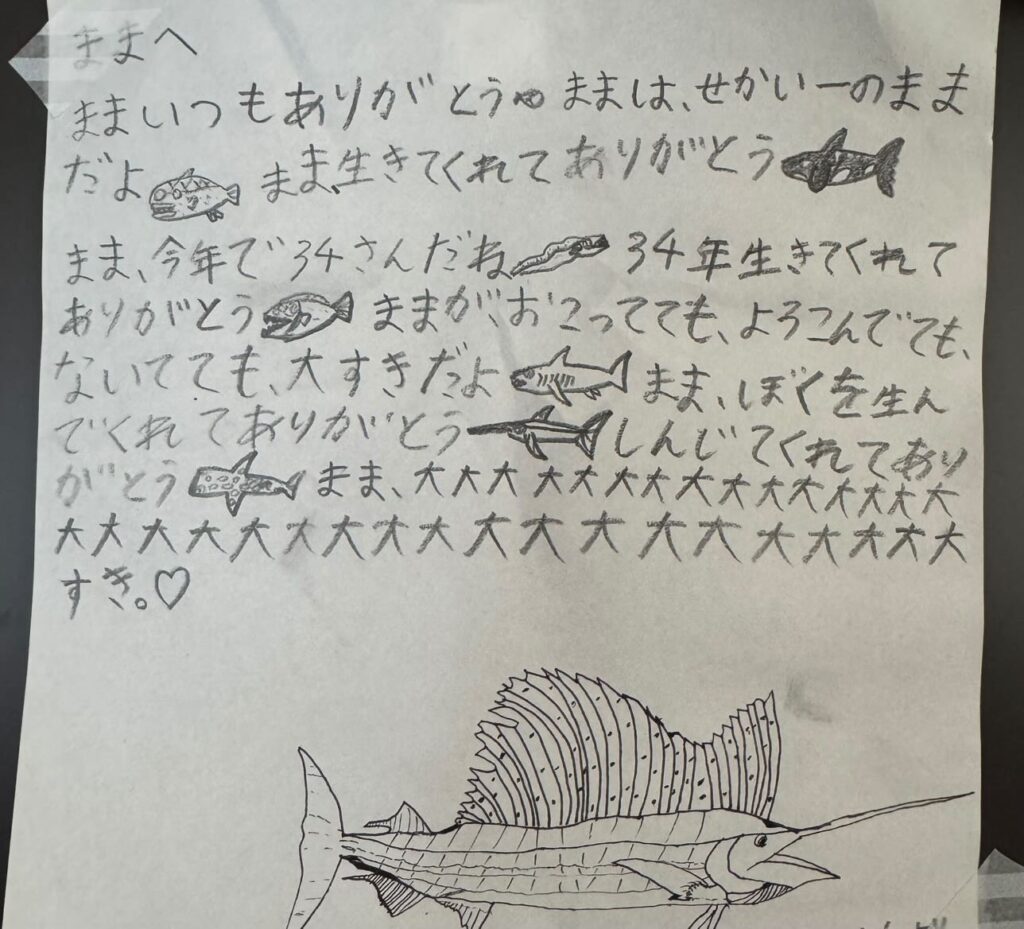 ままへ
ままいつもありがとう ままは、せかい一のまま
だよ まま、生きてくれてありがとう
まま、今年で34さんだね 34年生きてくれて
ありがとう ままが、おこってても、よろこんでても、
ないてても、大すきだよ まま、ぼくを生ん
でくれてありがとう しんじてくれてあり
がとう まま、大大大大大大大大大大大大大大大
大大大大大大大大大大大大大大大大大大大
すき。♡